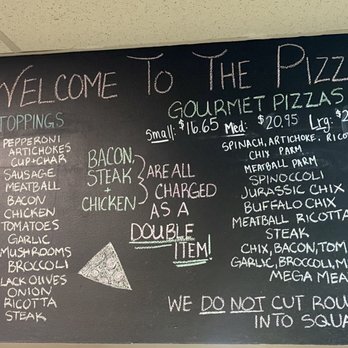 WELCOME TO THE PIZZ
TOPPINGS
PEPPERONI
ARTICHOKES
CUP+CHAR
SAUSAGE
MEATBALL
BACON
CHICKEN
TOMATOES
GARLIC
MUSHROOMS
BROCCOLI
LACK OLIVES
ONION
RICOTTA
STEAK
BACON,
STEAK
+
CHICKEN
ARE ALL
CHARGED
AS A
DOUBLE
ITEM!
GOURMET PIZZAS
Small: $16.65 Med: $20.95 Lrg: $2
SPINACH, ARTICHOKE, RICO
CHIX PARM
MEATBALL PARM
SPINOCCOLI
JURASSIC CHIX
BUFFALO CHIX
MEATBALL RICOTTA
STEAK
CHIX, BACON, TOM
GARLIC, BROCCOLI, M
MEGA MEA
WE DO NOT CUT ROU
INTO SQUA